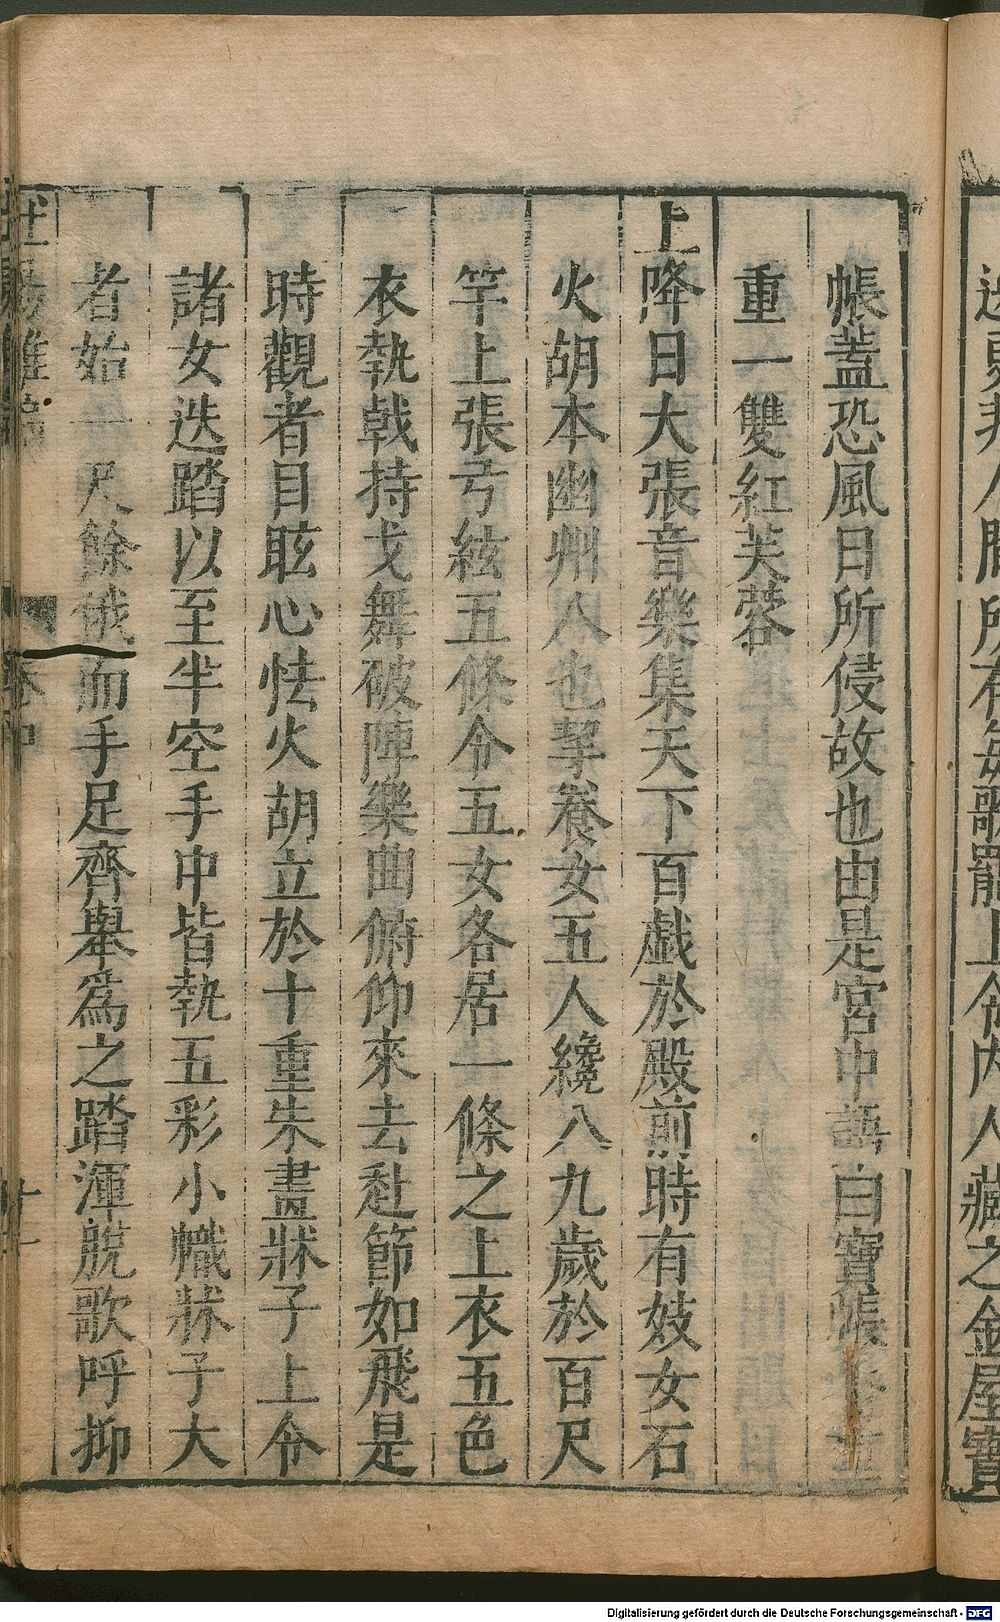 帳蓋恐風日所侵故也由是宮中語曰寶帳香重
重一雙紅芙蓉
上降日大張音樂集天下百戯於殿前時有妓女石
火胡本幽州人也挈養女五人纔八九歲於百尺
竿上張弓絃五條令五女各居一條之上衣五色
衣執戟持戈舞破陣樂曲俯仰來去赴節如飛是
時觀者目眩心怯火胡立於十重朱畫牀子上令
諸女迭踏以至半空手中皆執五彩小幟牀子大
者始一尺餘俄而手足齊舉為之踏渾脫歌呼抑
所有
上令内人藏之金屋寶
Digitalisierung gefördert durch die Deutsche Forschungsgemeinschaft - DFG